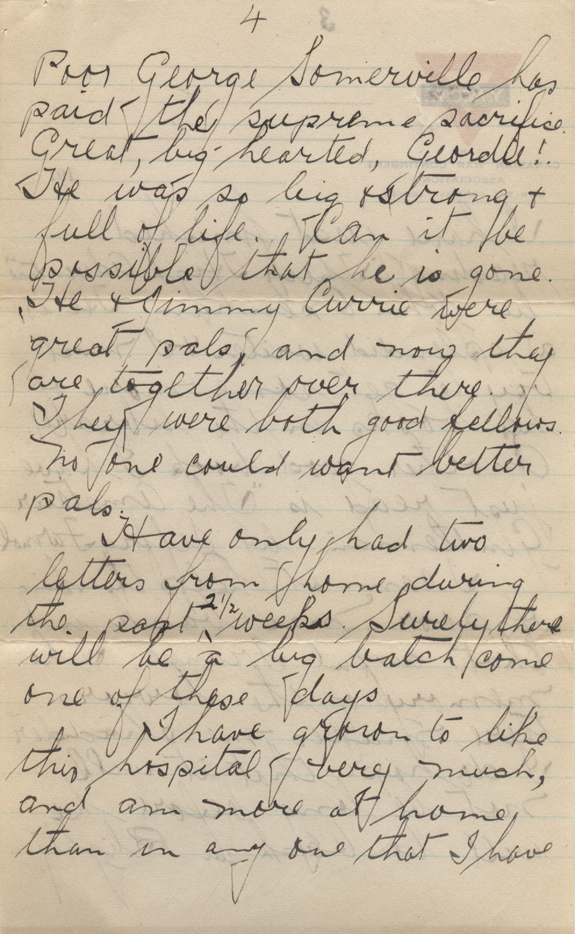 4
Poor George Somerville has
paid the supreme sacrifice.
Great, big hearted, Geordie!
He was so big & strong &
full of life. Can it be
possible that he is gone.
He & Jimmy Currie were
great pals, and now they
are together over there
They were both good fellows.
No one could want better
pals.
Have only had two
letters from home during
the past 2 1/2 weeks. Surely there
will be a big batch come
one of these days
I have grown to like
this hospital very much,
and am more at home
than in any one that I have